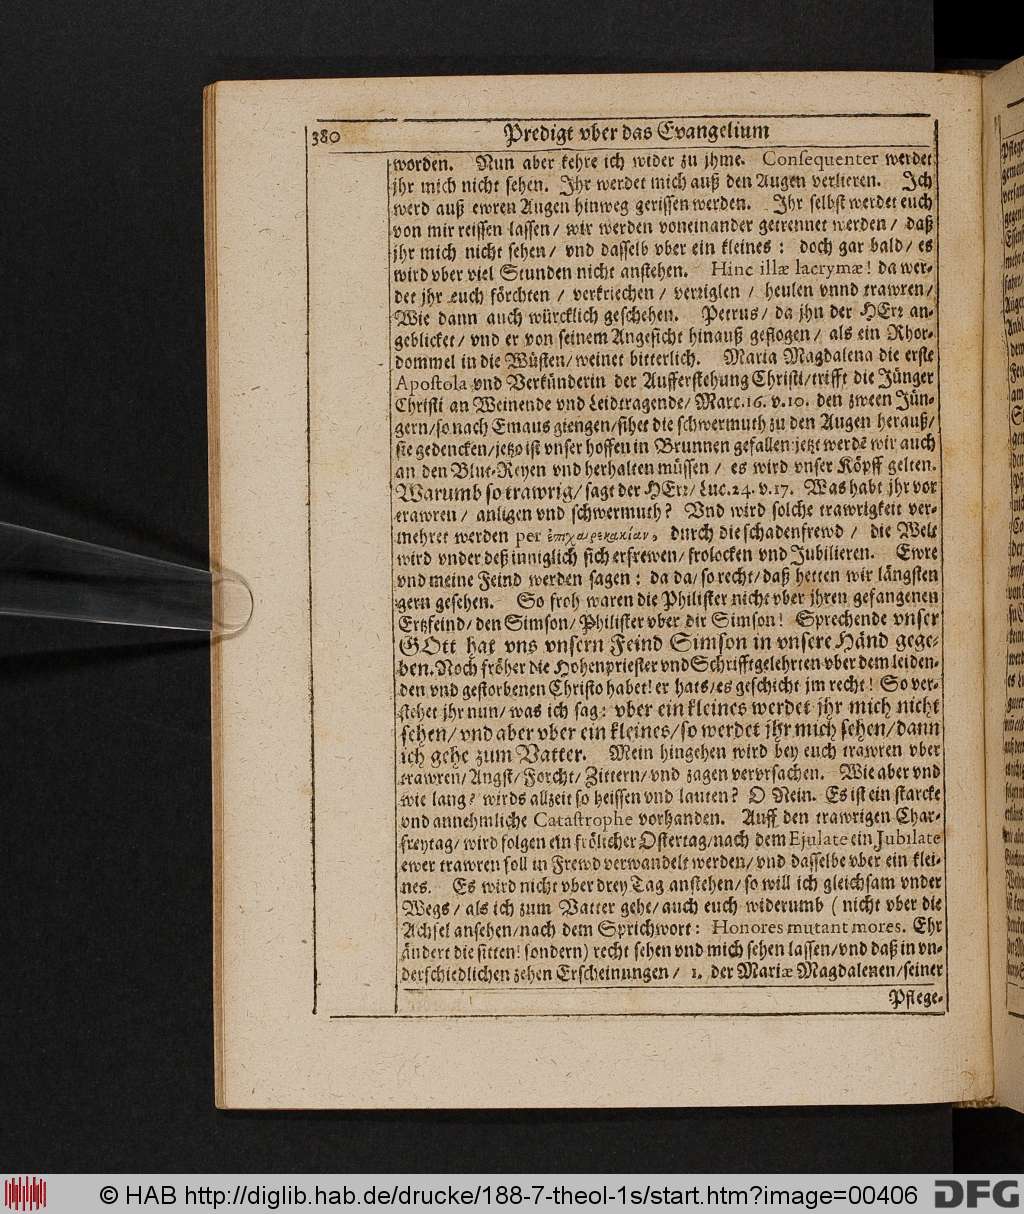 380 Predigt vber das Evangelium
worden. Nun aber kehre ich wider zu jhme. Consequenter werdet
jhr mich nicht sehen. Jhr werdet mich auß den Augen verlieren. Jch
werd auß ewren Augen hinweg gerissen werden. Jhr selbst werdet euch
von mir reissen lassen/ wir werden voneinander getrennet werden/ daß
jhr mich nicht sehen/ vnd dasselb vber ein kleines: doch gar bald/ es
wird vber viel Stunden nicht anstehen. Hinc illæ lacrymæ! da wer-
det jhr euch förchten / verkriechen / verriglen / heulen vnnd trawren/
Wie dann auch würcklich geschehen. Petrus/ da jhn der HErr an-
geblicket/ vnd er von seinem Angesicht hinauß geflogen/ als ein Rhor-
dommel in die Wüsten/ weinet bitterlich. Maria Magdalena die erste
Apostola vnd Verkünderin der Aufferstehung Christi/ trifft die Jünger
Christi an Weinende vnd Leidtragende/ Marc. 16. v. 10. den zween Jün-
gern/ so nach Emaus giengen/ sihet die schwermuth zu den Augen herauß/
sie gedencken/ jetzo ist vnser hoffen in Brunnen gefallen jetzt werdē wir auch
an den Blut-Reyen vnd herhalten müssen / es wird vnser Köpff gelten.
Warumb so trawrig/ sagt der HErr/ Luc. 24. v. 17. Was habt jhr vor
trawren/ anligen vnd schwermuth? Vnd wird solche trawrigkeit ver-
mehret werden per ἐπιχαιρεκακίαν, durch die schadenfrewd / die Welt
wird vnder deß inniglich sich erfrewen/ frolocken vnd Jubilieren. Ewre
vnd meine Feind werden sagen: da da/ so recht/ daß hetten wir längsten
gern gesehen. So froh waren die Philister nicht vber jhren gefangenen
Ertzfeind/ den Simson/ Philister vber dir Simson! Sprechende vnser
GOtt hat vns vnsern Feind Simson in vnsere Händ gege-
ben. Noch fröher die Hohenpriester vnd Schrifftgelehrten vber dem leiden-
den vnd gestorbenen Christo habet! er hats/ es geschicht jm recht! So ver-
stehet jhr nun/ was ich sag: vber ein kleines werdet jhr mich nicht
sehen/ vnd aber vber ein kleines/ so werdet jhr mich sehen/ dann
ich gehe zum Vatter. Mein hingehen wird bey euch trawren vber
trawren/ Angst/ Forcht/ Zittern/ vnd zagen vervrsachen. Wie aber vnd
wie lang? wirds allzeit so heissen vnd lauten? O Nein. Es ist ein starcke
vnd annehmliche Catastrophe vorhanden. Auff den trawrigen Char-
freytag/ wird folgen ein frölicher Ostertag/ nach dem Ejulate ein Jubilate
ewer trawren soll in Frewd verwandelt werden/ vnd dasselbe vber ein klei-
nes. Es wird nicht vber drey Tag anstehen/ so will ich gleichsam vnder
Wegs/ als ich zum Vatter gehe/ auch euch widerumb (nicht vber die
Achsel ansehen/ nach dem Sprichwort: Honores mutant mores. Ehr
ändert die sitten! sondern) recht sehen vnd mich sehen lassen/ vnd daß in vn-
derschiedlichen zehen Erscheinungen / 1. der Mariæ Magdalenen/ seiner
Pflege-
© HAB http://diglib.hab.de/drucke/188-7-theol-1s/start.htm?image=00406 DFG